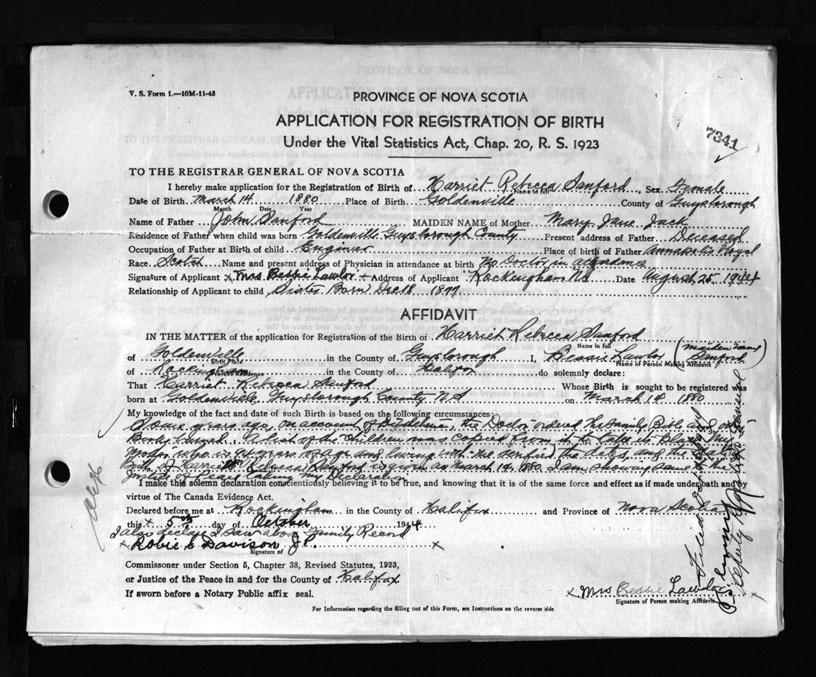 V. S. Form 1.—10M-11-43
PROVINCE OF NOVA SCOTIA
APPLICATION FOR REGISTRATION OF BIRTH
Under the Vital Statistics Act, Chap. 20, R. S. 1923
7341
TO THE REGISTRAR GENERAL OF NOVA SCOTIA
I hereby make application for the Registration of Birth of Harriet Rebecca Sanford, Sex Female
Name in full
Date of Birth March 14 1880 Place of Birth Goldenville County of Guysborough
Month Date Year
Name of Father John Sanford MAIDEN NAME of Mother Mary Jane Jack
Residence of Father when child was born Goldenville Guysborough County Present address of Father Deceased
Occupation of Father at Birth of child Engineer Place of birth of Father Annapolis Royal
Race Scotch Name and present address of Physician in attendance at birth No Doctor in attendance
Signature of Applicant x Mrs Bessie Lawlor x Address of Applicant Rockingham N.S Date August 25 1944
Relationship of Applicant to child Sister Born Dec 18 1877
AFFIDAVIT
IN THE MATTER of the application for Registration of the Birth of Harriet Rebecca Sanford
Name in full
of Goldenville in the County of Guysborough I, Bessie Lawlor (maiden name Sanford)
Birth Place Name of Person Making Affidavit
of Rockingham in the County of Halifax do solemnly declare:
That Harriet Rebecca Sanford Whose Birth is sought to be registered was
born at Goldenville Guysborough County N.S on March 14 1880
My knowledge of the fact and date of such Birth is based on the following circumstances:
years ago, on account of the Doctor ordered the Family Bible and other
Books burned. A list of the children was copied from it to take its place. My
Mother who is years of age and living with me verified the dates, and the date of
Birth of Harriet Rebecca Sanford is given as March 14, 1880. I am showing same to the
Justice of Peace taking this Declaration
I make this solemn declaration conscientiously believing it to be true, and knowing that it is of the same force and effect as if made under oath and by
virtue of The Canada Evidence Act.
Declared before me at Rockingham in the County of Halifax and Province of Nova Scotia
this x 5th day of October 1944
I also declare I saw above Family Record
x Robie C Davison J.P. x
Signature of
Commissioner under Section 5, Chapter 38, Revised Statutes, 1923,
or Justice of the Peace in and for the County of Halifax
If sworn before a Notary Public affix seal.
x Mrs Bessie Lawlor
Signature of Person making Affidavit
For Information regarding the filling out of this Form, see Instructions on the reverse side
Deputy Registrar General